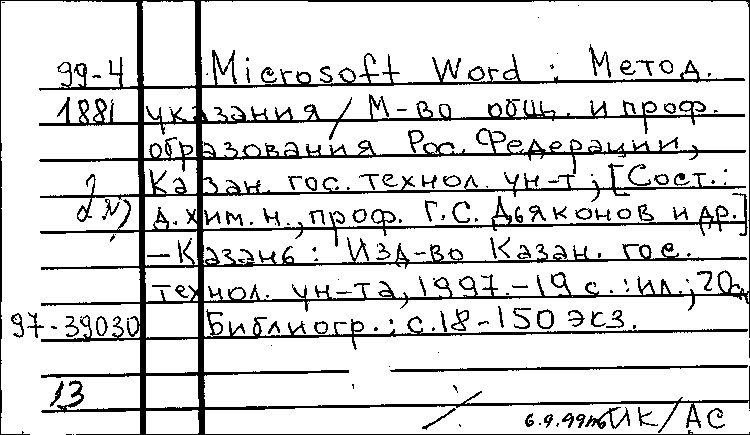 99-4 Microsoft Word : Метод.
1881 указания / М-во общ. и проф.
образования Рос. Федерации,
Казан. гос. технол. ун-т; [Сост.:
д.хим.н., проф. Г.С. Дьяконов и др.]
—Казань : Изд-во Казан. гос.
технол. ун-та, 1997.-19 с. : ил.; 20
97-39030 Библиогр.: с.18-150 экз.
13
6.9.99 ИК/АС